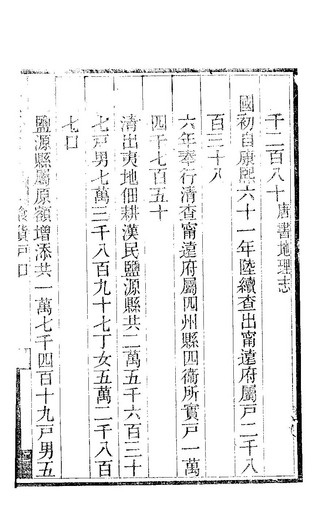 千二百八十唐書地理志
國初自康熙六十一年陸續查出甯遠府屬戸二千八
百三十八
六年奉行清查甯遠府屬四州縣四衞所實戸一萬
四千七百五十
清出夷地佃耕漢民鹽源縣共二萬五千六百三十
七戸男七萬三千八百九十七丁女五萬二千八百
七口
鹽源縣屬原額增添共一萬七千四百十九戸男五
食貨戸口